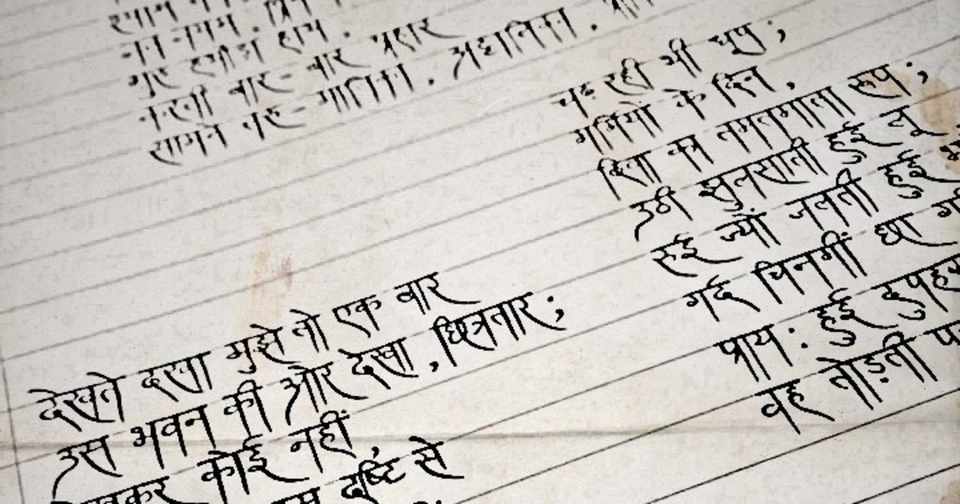 श्याम
नत नयन, प्रिय
गुरु हथौड़ा हाथ,
करती बार-बार प्रहार
सामने तरु-मालिका, अट्टालिका,
चढ़ रही थी धूप;
गर्मियों के दिन,
दिवा का तमतमाता रूप;
उठी झुलसाती हुई लू
रुई ज्यों जलती हुई
गर्द चिनगीं छा
प्राय: हुई दुपहर
वह तोड़ती
देखते देखा मुझे तो एक बार
उस भवन की ओर देखा, छिन्नतार;
कोई नहीं,
दृष्टि से